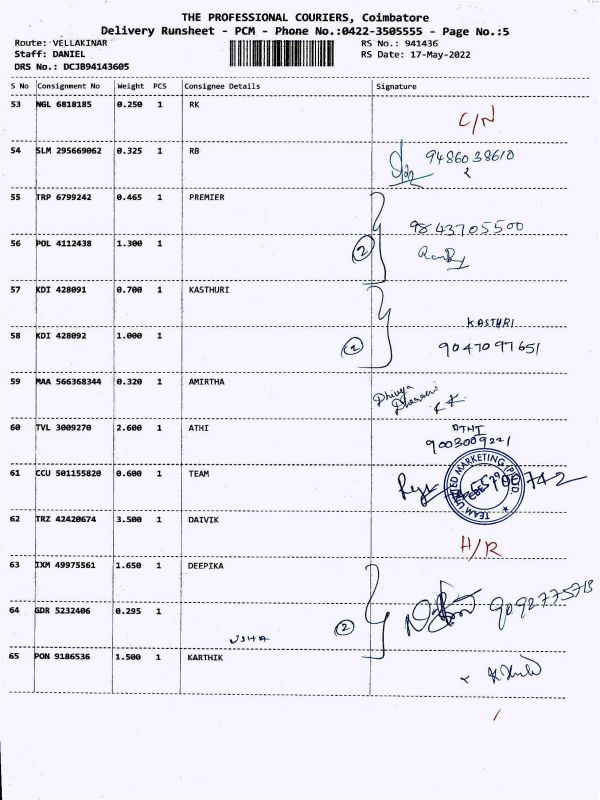 THE PROFESSIONAL COURIERS, Coimbatore
Delivery Runsheet - PCM - Phone No.:0422-3505555 - Page No.:5
Route: VELLAKINAR RS No.: 941436
Staff: DANIEL RS Date: 17-May-2022
DRS No.: DCJB94143605
S No Consignment No Weight PCS Consignee Details Signature
53 NGL 6818185 0.250 1 RK
C/N
54 SLM 295669062 0.325 1 RB
9486038610
55 TRP 6799242 0.465 1 PREMIER
9843705500
56 POL 4112438 1.300 1
2
57 KDI 428091 0.700 1 KASTHURI
KASTHRI
58 KDI 428092 1.000 1
2 9047097651
59 MAA 566368344 0.320 1 AMIRTHA
Dhivya
60 TVL 3009270 2.600 1 ATHI
ATHI
9003009221
61 CCU 501155820 0.600 1 TEAM
TEAM UNITED MARKETING (P) LTD.
62 TRZ 42420674 3.500 1 DAIVIK
H/R
63 IXM 49975561 1.650 1 DEEPIKA
9092775713
64 GDR 5232406 0.295 1
USHA 2
65 PON 9186536 1.500 1 KARTHIK